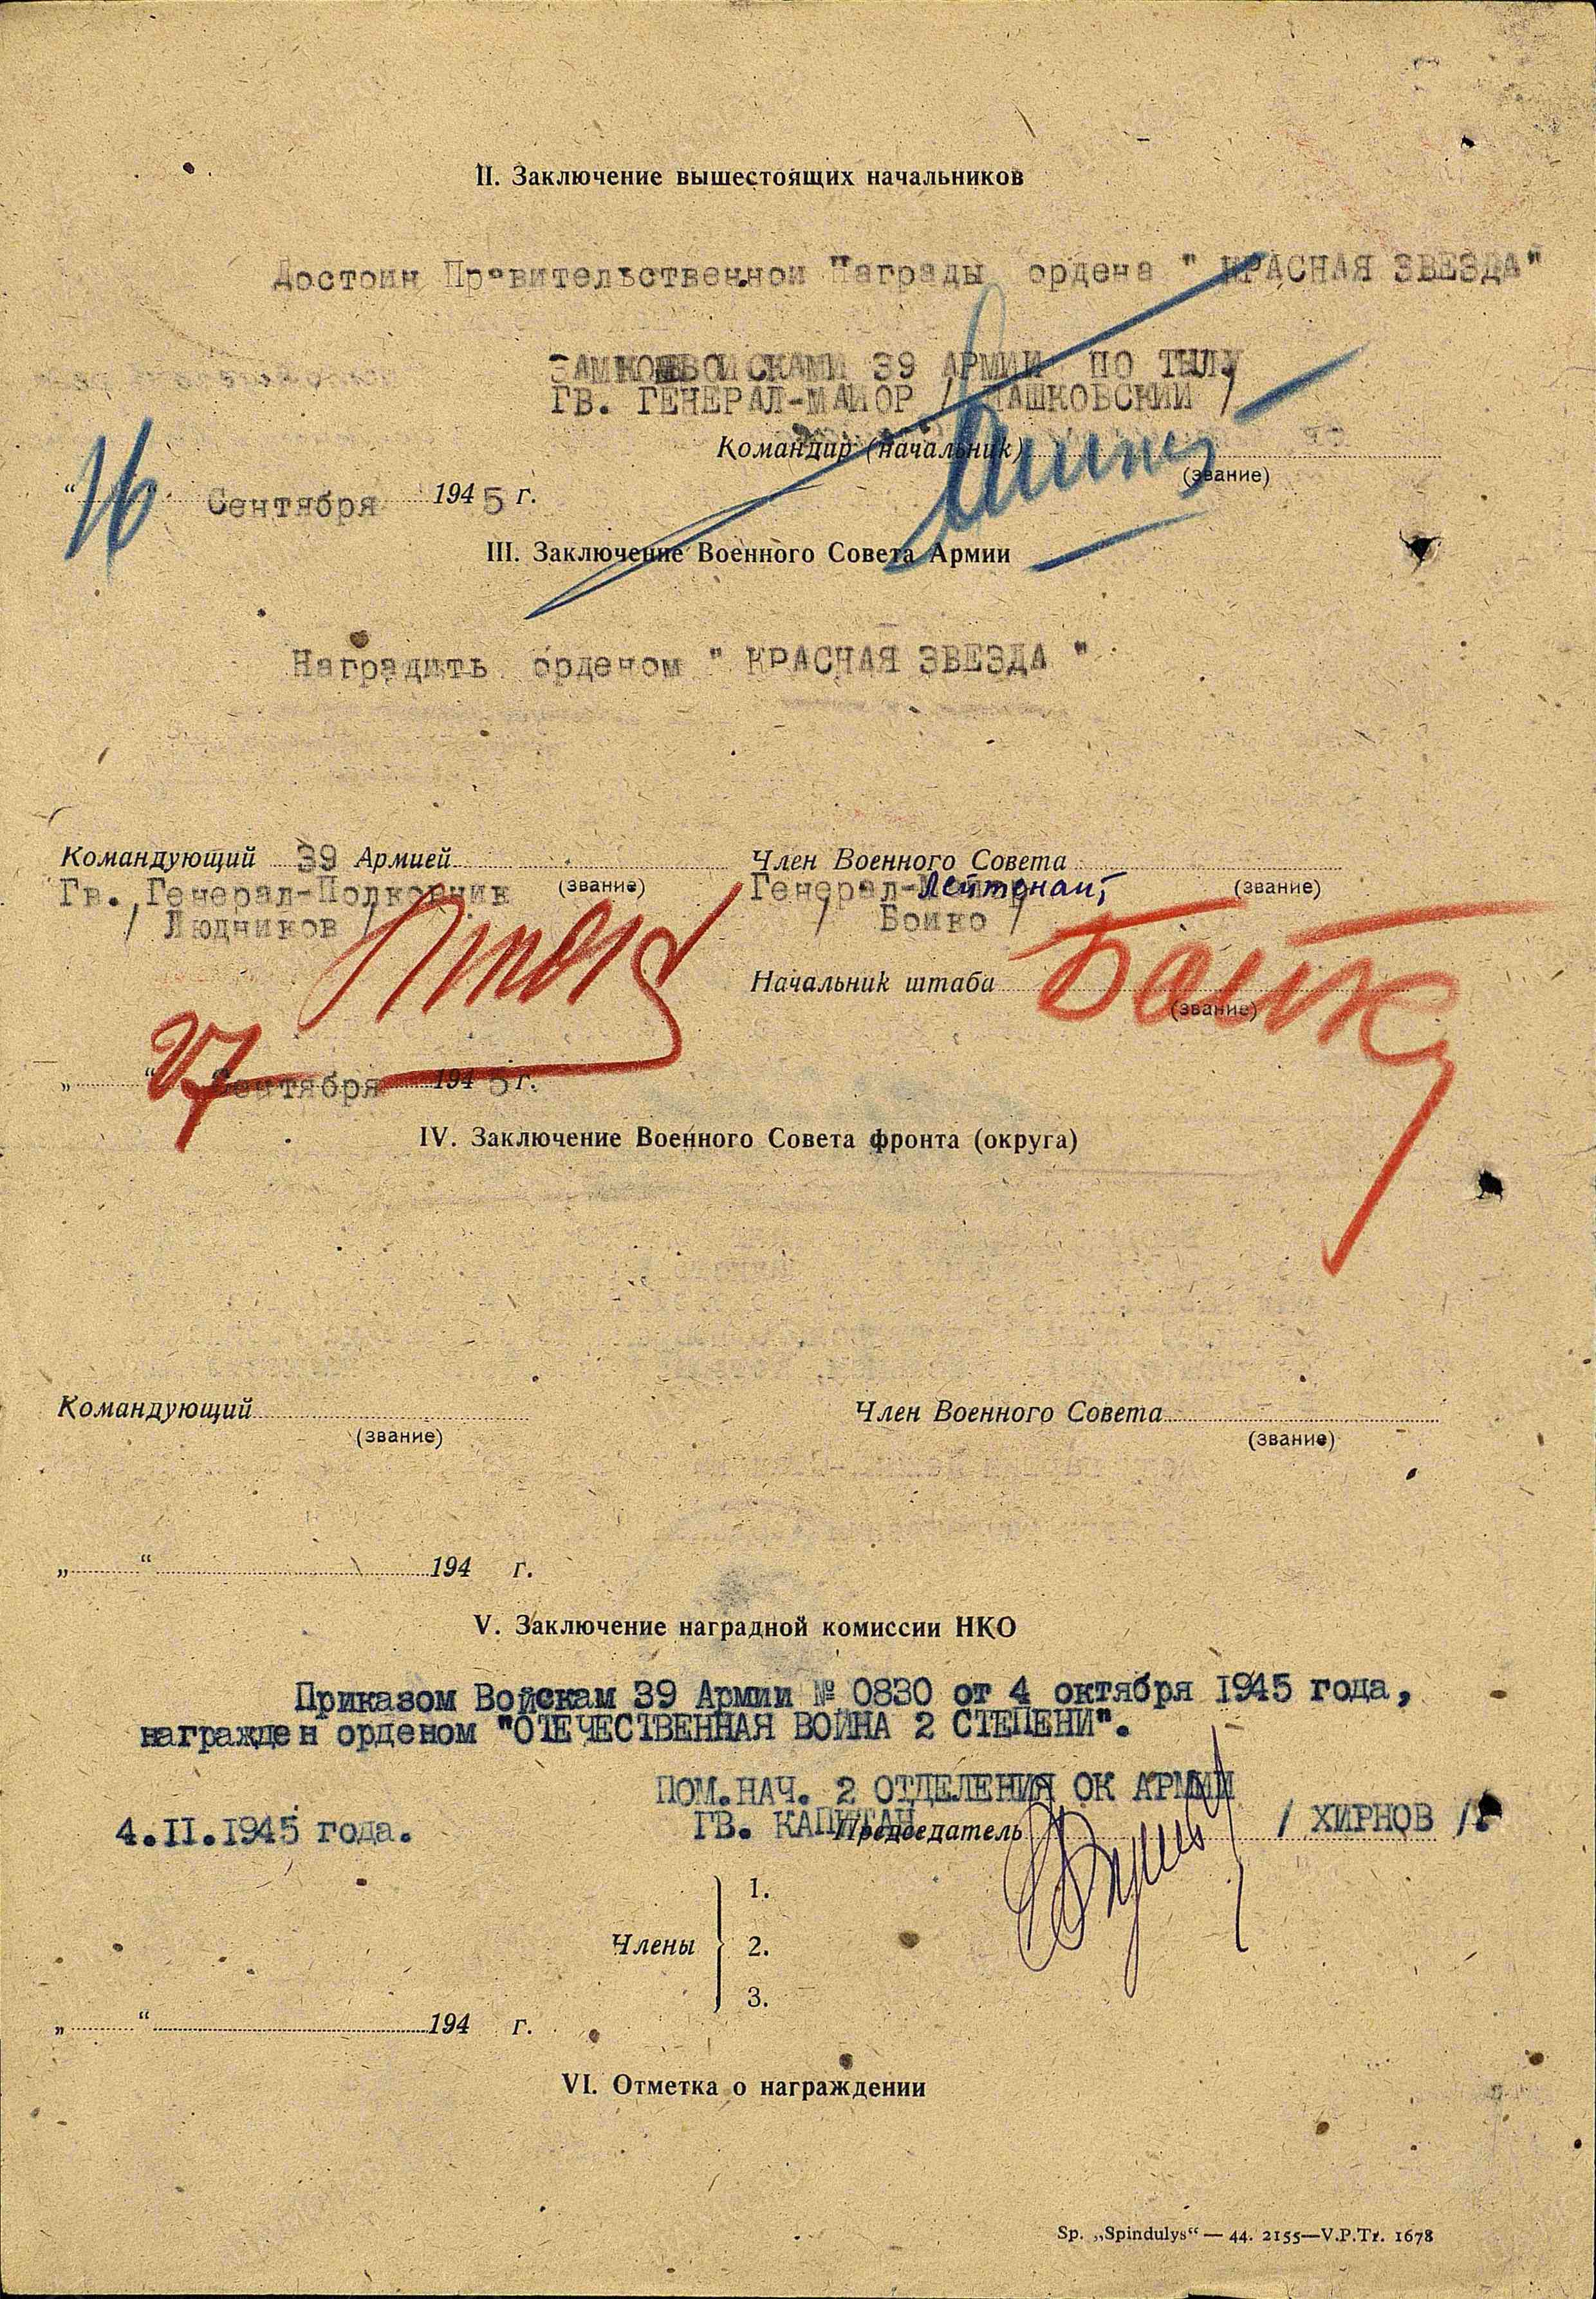 II. Заключение вышестоящих начальников
Достоин Правительственной Награды ордена " КРАСНАЯ ЗВЕЗДА"
ЗАМКОМВОЙСКАМИ 39 АРМИИ ПО ТЫЛУ
ГВ. ГЕНЕРАЛ-МАЙОР / ПАШКОВСКИЙ /
Командир (начальник)
(звание)
"16" Сентября 1945 г.
III. Заключение Военного Совета Армии
Наградить орденом " КРАСНАЯ ЗВЕЗДА "
Командующий 39 Армией
(звание)
Гв. Генерал-Полковник
/ Людников /
Член Военного Совета
(звание)
Генерал-Лейтенант
/ Бойко /
Начальник штаба
(звание)
„27“ Сентября 1945 г.
IV. Заключение Военного Совета фронта (округа)
Командующий
(звание)
Член Военного Совета
(звание)
„ “ 194 г.
V. Заключение наградной комиссии НКО
Приказом Войскам 39 Армии № 0830 от 4 октября 1945 года,
награжден орденом "ОТЕЧЕСТВЕННАЯ ВОЙНА 2 СТЕПЕНИ".
ПОМ.НАЧ. 2 ОТДЕЛЕНИЯ ОК АРМИИ
ГВ. КАПИТАН
Председатель
/ ХИРНОВ /.
4.II.1945 года.
Члены
1.
2.
3.
„ “ 194 г.
VI. Отметка о награждении
Sp. „Spindulys“ — 44. 2155—V.P.Tr. 1678